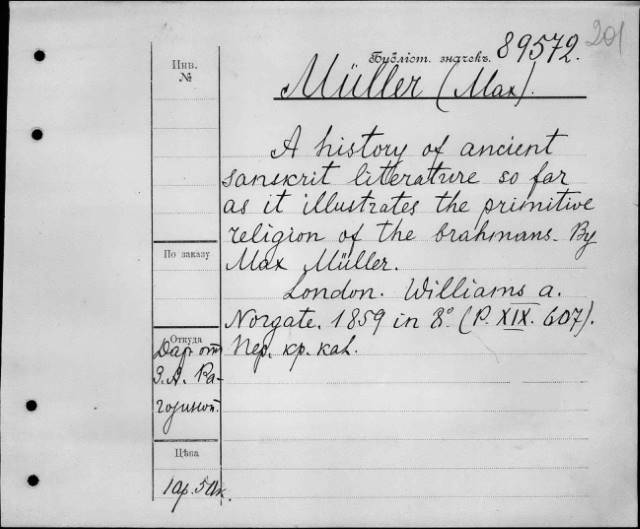 201
Библіот. значекъ. 89572.
Müller (Max).
A history of ancient
sanskrit literature so far
as it illustrates the primitive
religion of the brahmans. By
Max Müller.
London. Williams a.
Norgate. 1859 in 8° (P. XIX. 607).
Пер. кр. кал.
Инв.
№
По заказу
Откуда
Даръ отъ
З. А. Ра-
гозиной.
Цѣна
1 ар. 50 к.